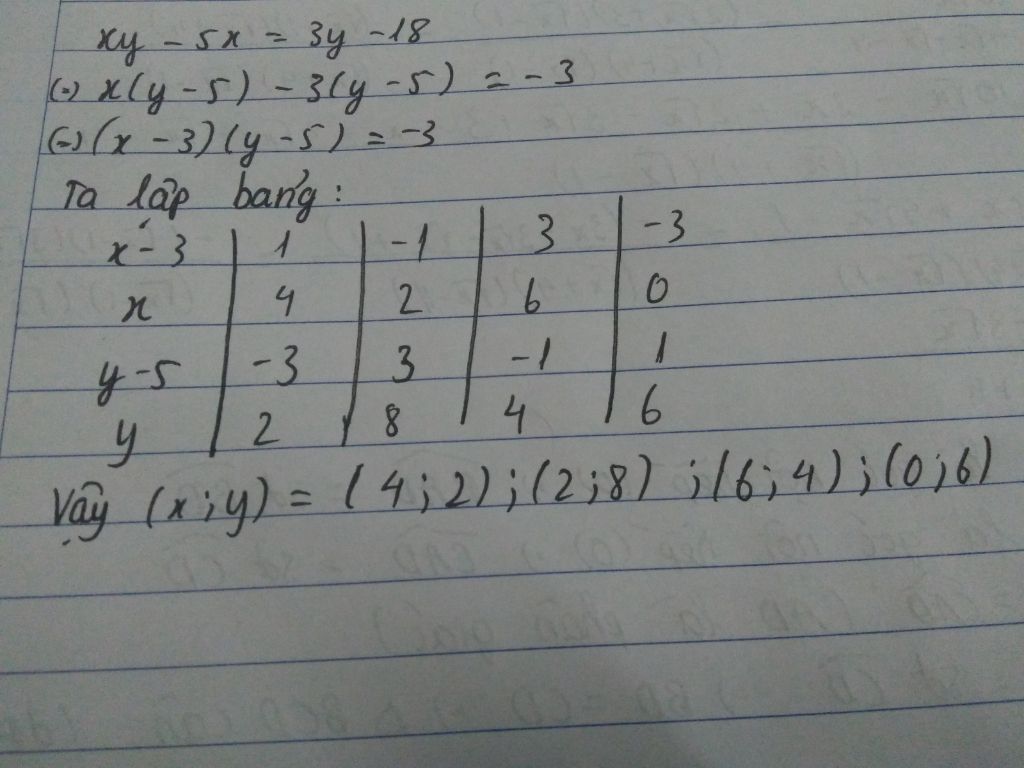 xy - 5x = 3y - 18
(=) x(y - 5) - 3(y - 5) = - 3
(=) (x - 3)(y - 5) = -3
Ta lập bảng:
x - 3 | 1 | -1 | 3 | -3
x | 4 | 2 | 6 | 0
y - 5 | -3 | 3 | -1 | 1
y | 2 | 8 | 4 | 6
Vậy (x; y) = (4; 2); (2; 8); (6; 4); (0; 6)